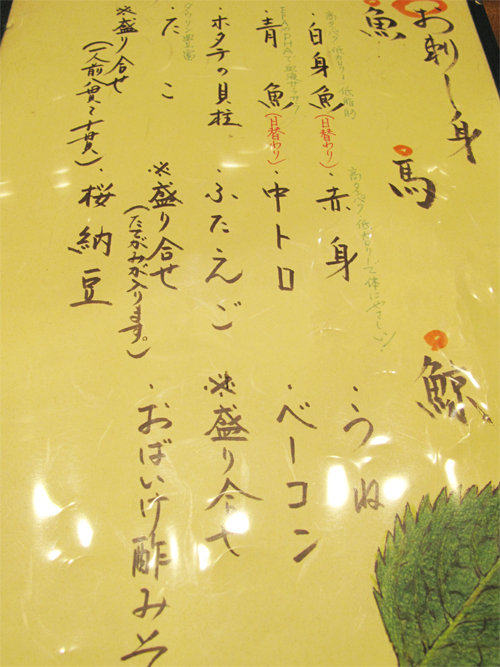 お刺し身
魚
高タンパク 低カロリー 低脂肪
・白身魚(日替わり)
EPAやDHAで血液サラサラ
・青魚(日替わり)
・ホタテの貝柱
タウリン豊富
・たこ
※盛り合せ
(一人前八貫で十貫)
馬
高タンパク 低カロリーで体にやさしい!
・赤身
・中トロ
・ふたえご
※盛り合せ
(たてがみが入ります。)
・桜納豆
鯨
・うね
・ベーコン
※盛り合せ
・おばいけ酢みそ